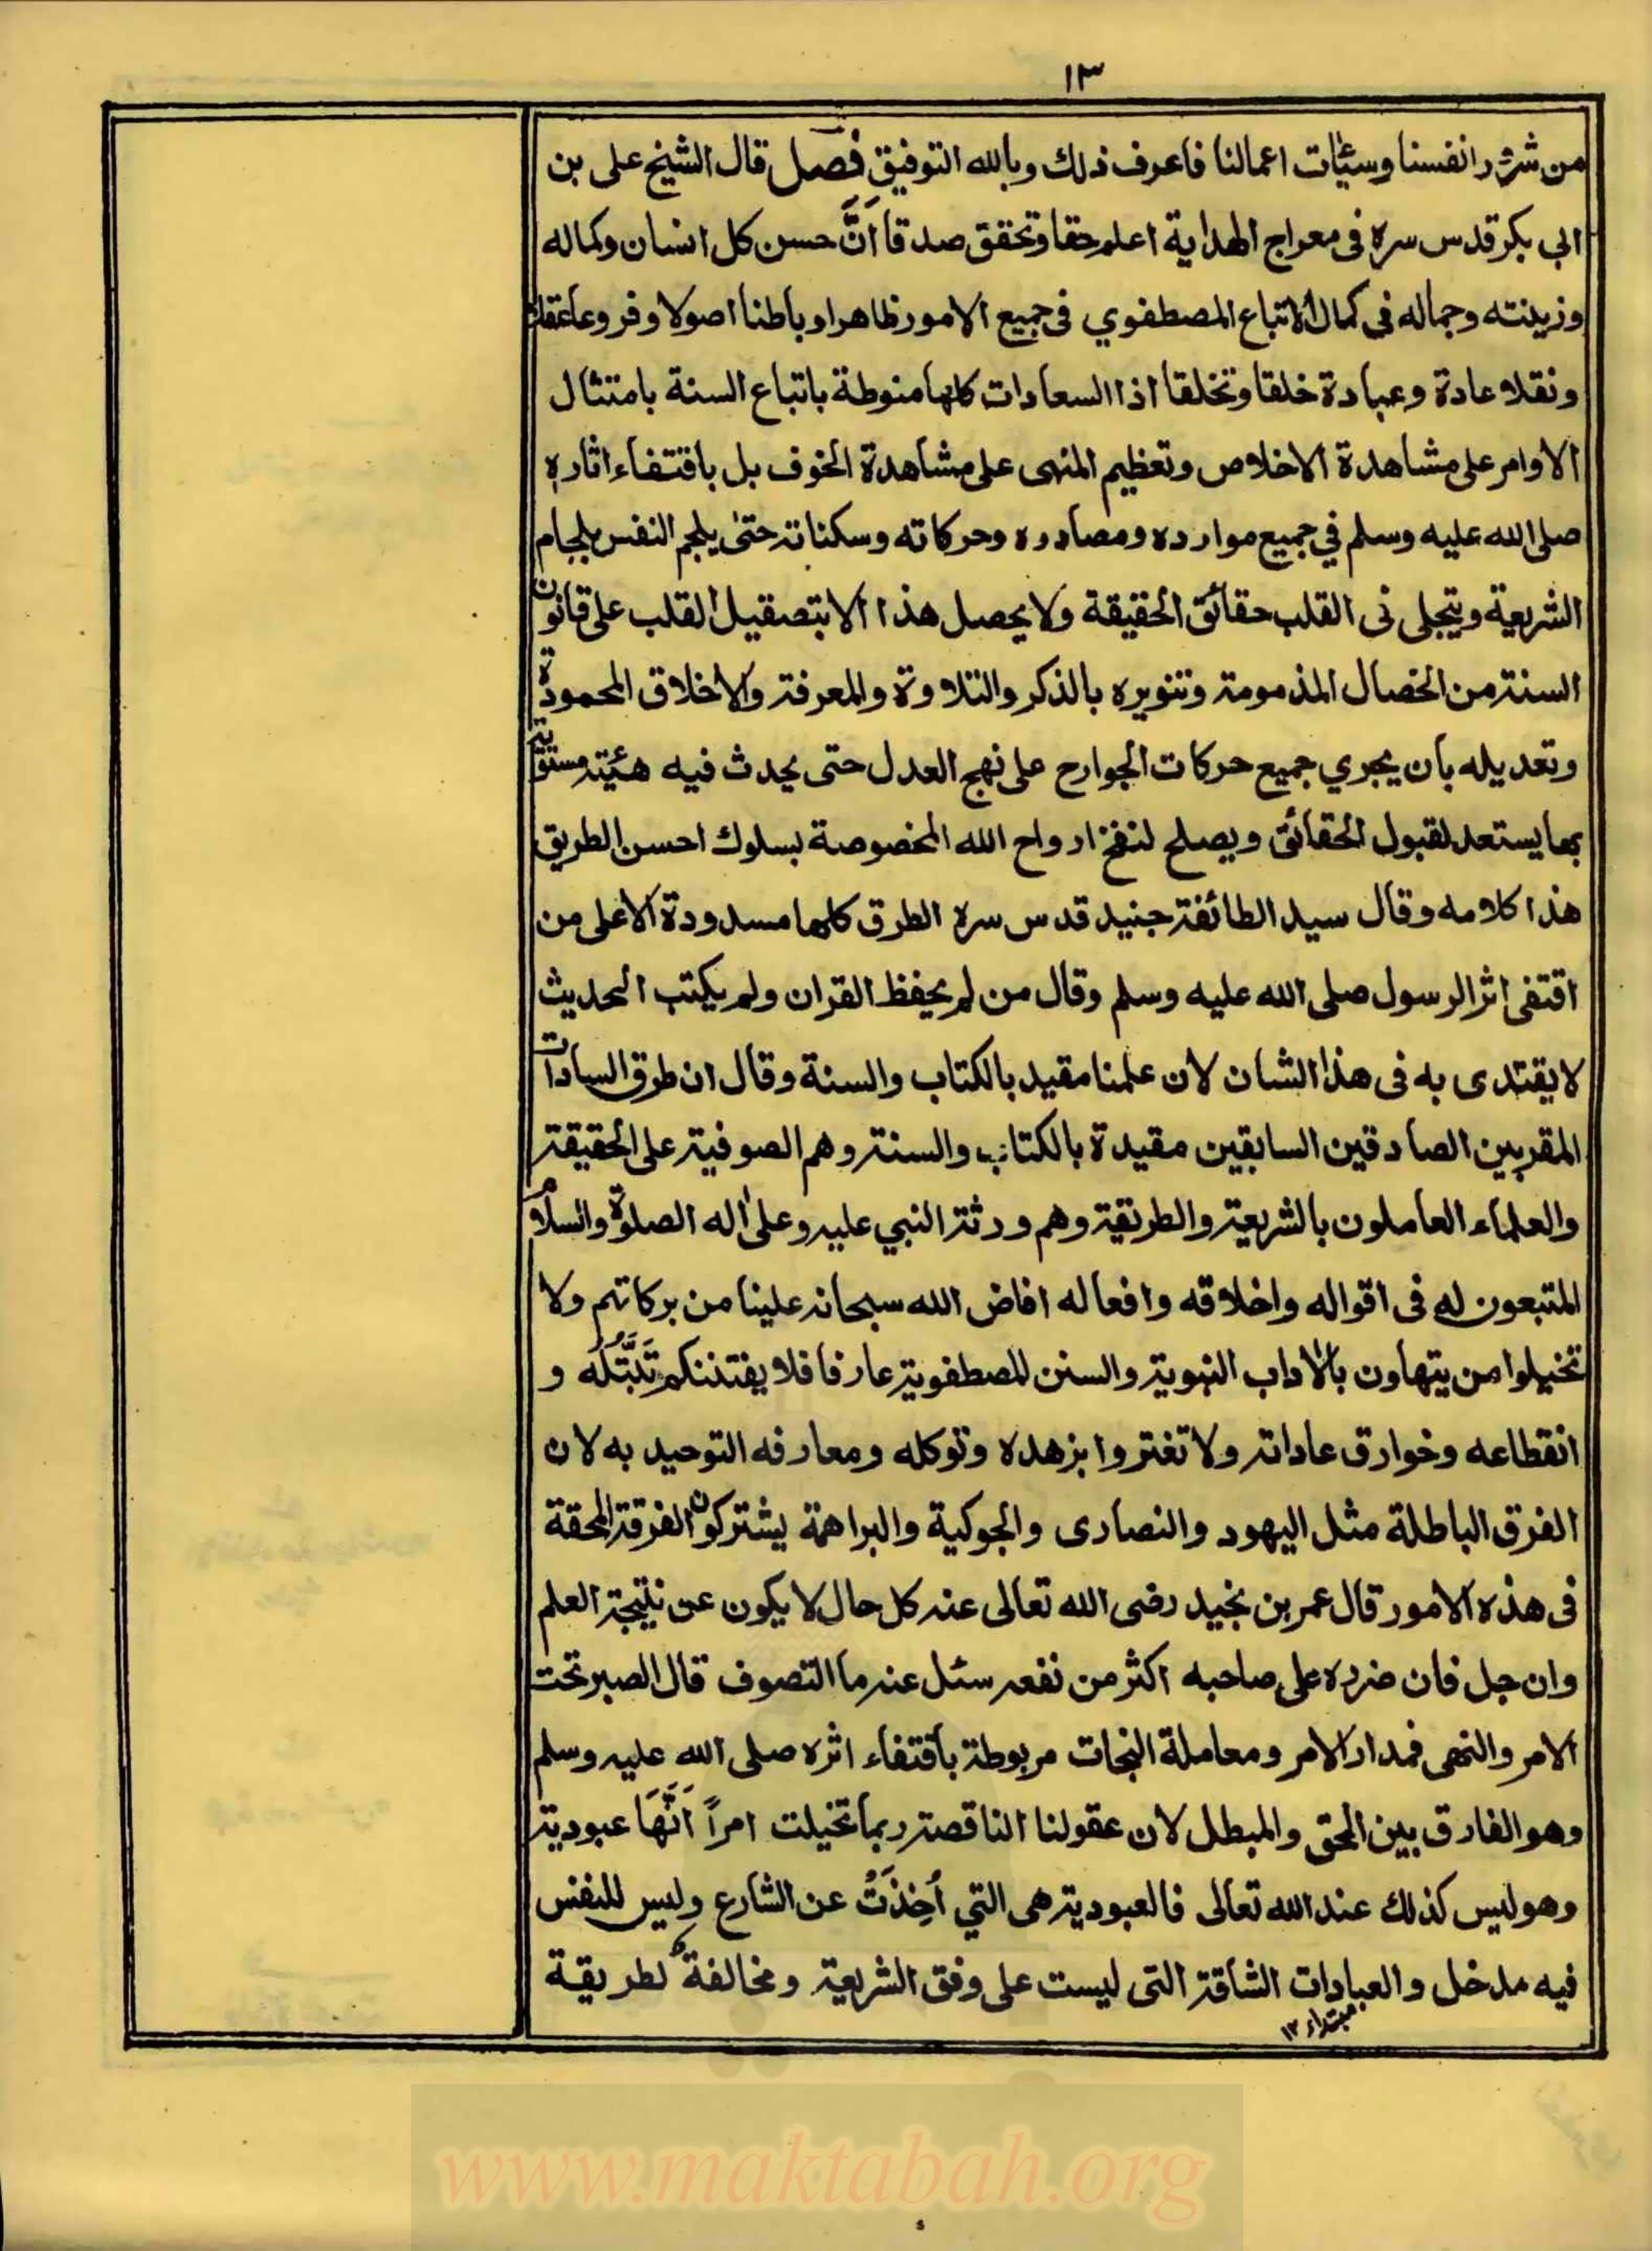 ١٣
من شرور انفسنا وسيئات اعمالنا فاعرف ذلك وبالله التوفيق فصل قال الشيخ على بن
ابي بكر قدس سره فى معراج الهداية اعلم حقا وتحقق صدقا اَنَّ حسن كل انسان وكماله
وزينته وجماله فى كمال الاتباع المصطفوي فى جميع الامور ظاهرا وباطنا اصولا وفروعا عقلا
ونقلا عادة وعبادة خلقا وتخلقا اذا السعادات كلها منوطة باتباع السنة بامتثال
الاوامر على مشاهدة الاخلاص وتعظيم المنهى على مشاهدة الخوف بل باقتفاء اثاره
صلى الله عليه وسلم في جميع موارده ومصادره وحركاته وسكناته حتى يلجم النفس بلجام
الشريعة ويتجلى فى القلب حقائق الحقيقة ولا يحصل هذا الا بتصقيل القلب على قانون
السنة من الخصال المذمومة وتنويره بالذكر والتلاوة والمعرفة والاخلاق المحمودة
وتعديله بان يجري جميع حركات الجوارح على نهج العدل حتى يحدث فيه هيئة مستوية
بها يستعد لقبول الحقائق ويصلح لنفخ ارواح الله المخصوصة بسلوك احسن الطريق
هذا كلامه وقال سيد الطائفة جنيد قدس سره الطرق كلها مسدودة الا على من
اقتفى اثر الرسول صلى الله عليه وسلم وقال من لم يحفظ القران ولم يكتب الحديث
لا يقتدى به فى هذا الشان لان علمنا مقيد بالكتاب والسنة وقال ان طرق السادات
المقربين الصادقين السابقين مقيدة بالكتاب والسنة وهم الصوفية على الحقيقة
والعلماء العاملون بالشريعة والطريقة وهم ورثة النبي عليه وعلى اله الصلوة والسلام
المتبعون له فى اقواله واخلاقه وافعاله افاض الله سبحانه علينا من بركاتهم ولا
تخيلوا من يتهاون بالاداب النبوية والسنن المصطفوية عارفا فلا يفتننكم تَبَتُّلُه و
انقطاعه وخوارق عاداته ولا تغتروا بزهده وتوكله ومعارفه التوحيد به لان
الفرق الباطلة مثل اليهود والنصارى والجوكية والبراهمة يشتركون الفرقة المحقة
فى هذه الامور قال عمر بن نجيد رضى الله تعالى عنه كل حال لا يكون عن نتيجة العلم
وان جل فان ضرره على صاحبه اكثر من نفعه سئل عنه ما التصوف قال الصبر تحت
الامر والنهى فمدار الامر ومعاملة النجات مربوطة باقتفاء اثره صلى الله عليه وسلم
وهو الفارق بين المحق والمبطل لان عقولنا الناقصة ربما تخيلت امراً اَنَّهَا عبودية
وهو ليس كذلك عند الله تعالى فالعبودية هى التي اُخِذَتْ عن الشارع وليس للنفس
فيه مدخل والعبادات الشاقة التى ليست على وفق الشريعة ومخالفة لطريقة
مبتداء ١٢
www.maktabah.org